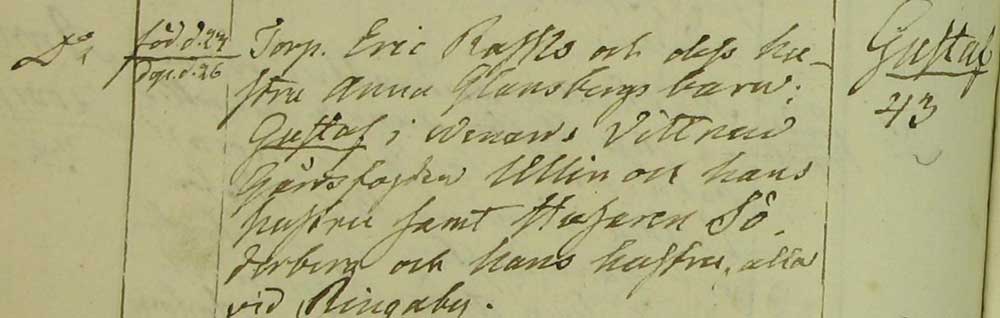 Do
föd d. 27
döpt d. 26
Torp. Eric Rasks och dess hu-
stru Anna Glansbergs barn:
Gustaf; Vittnen
Gårdsfogden Ullin och hans
hustru samt Husaren Sö-
derberg och hans hustru, alla
vid Ringaby.
Gustaf
43